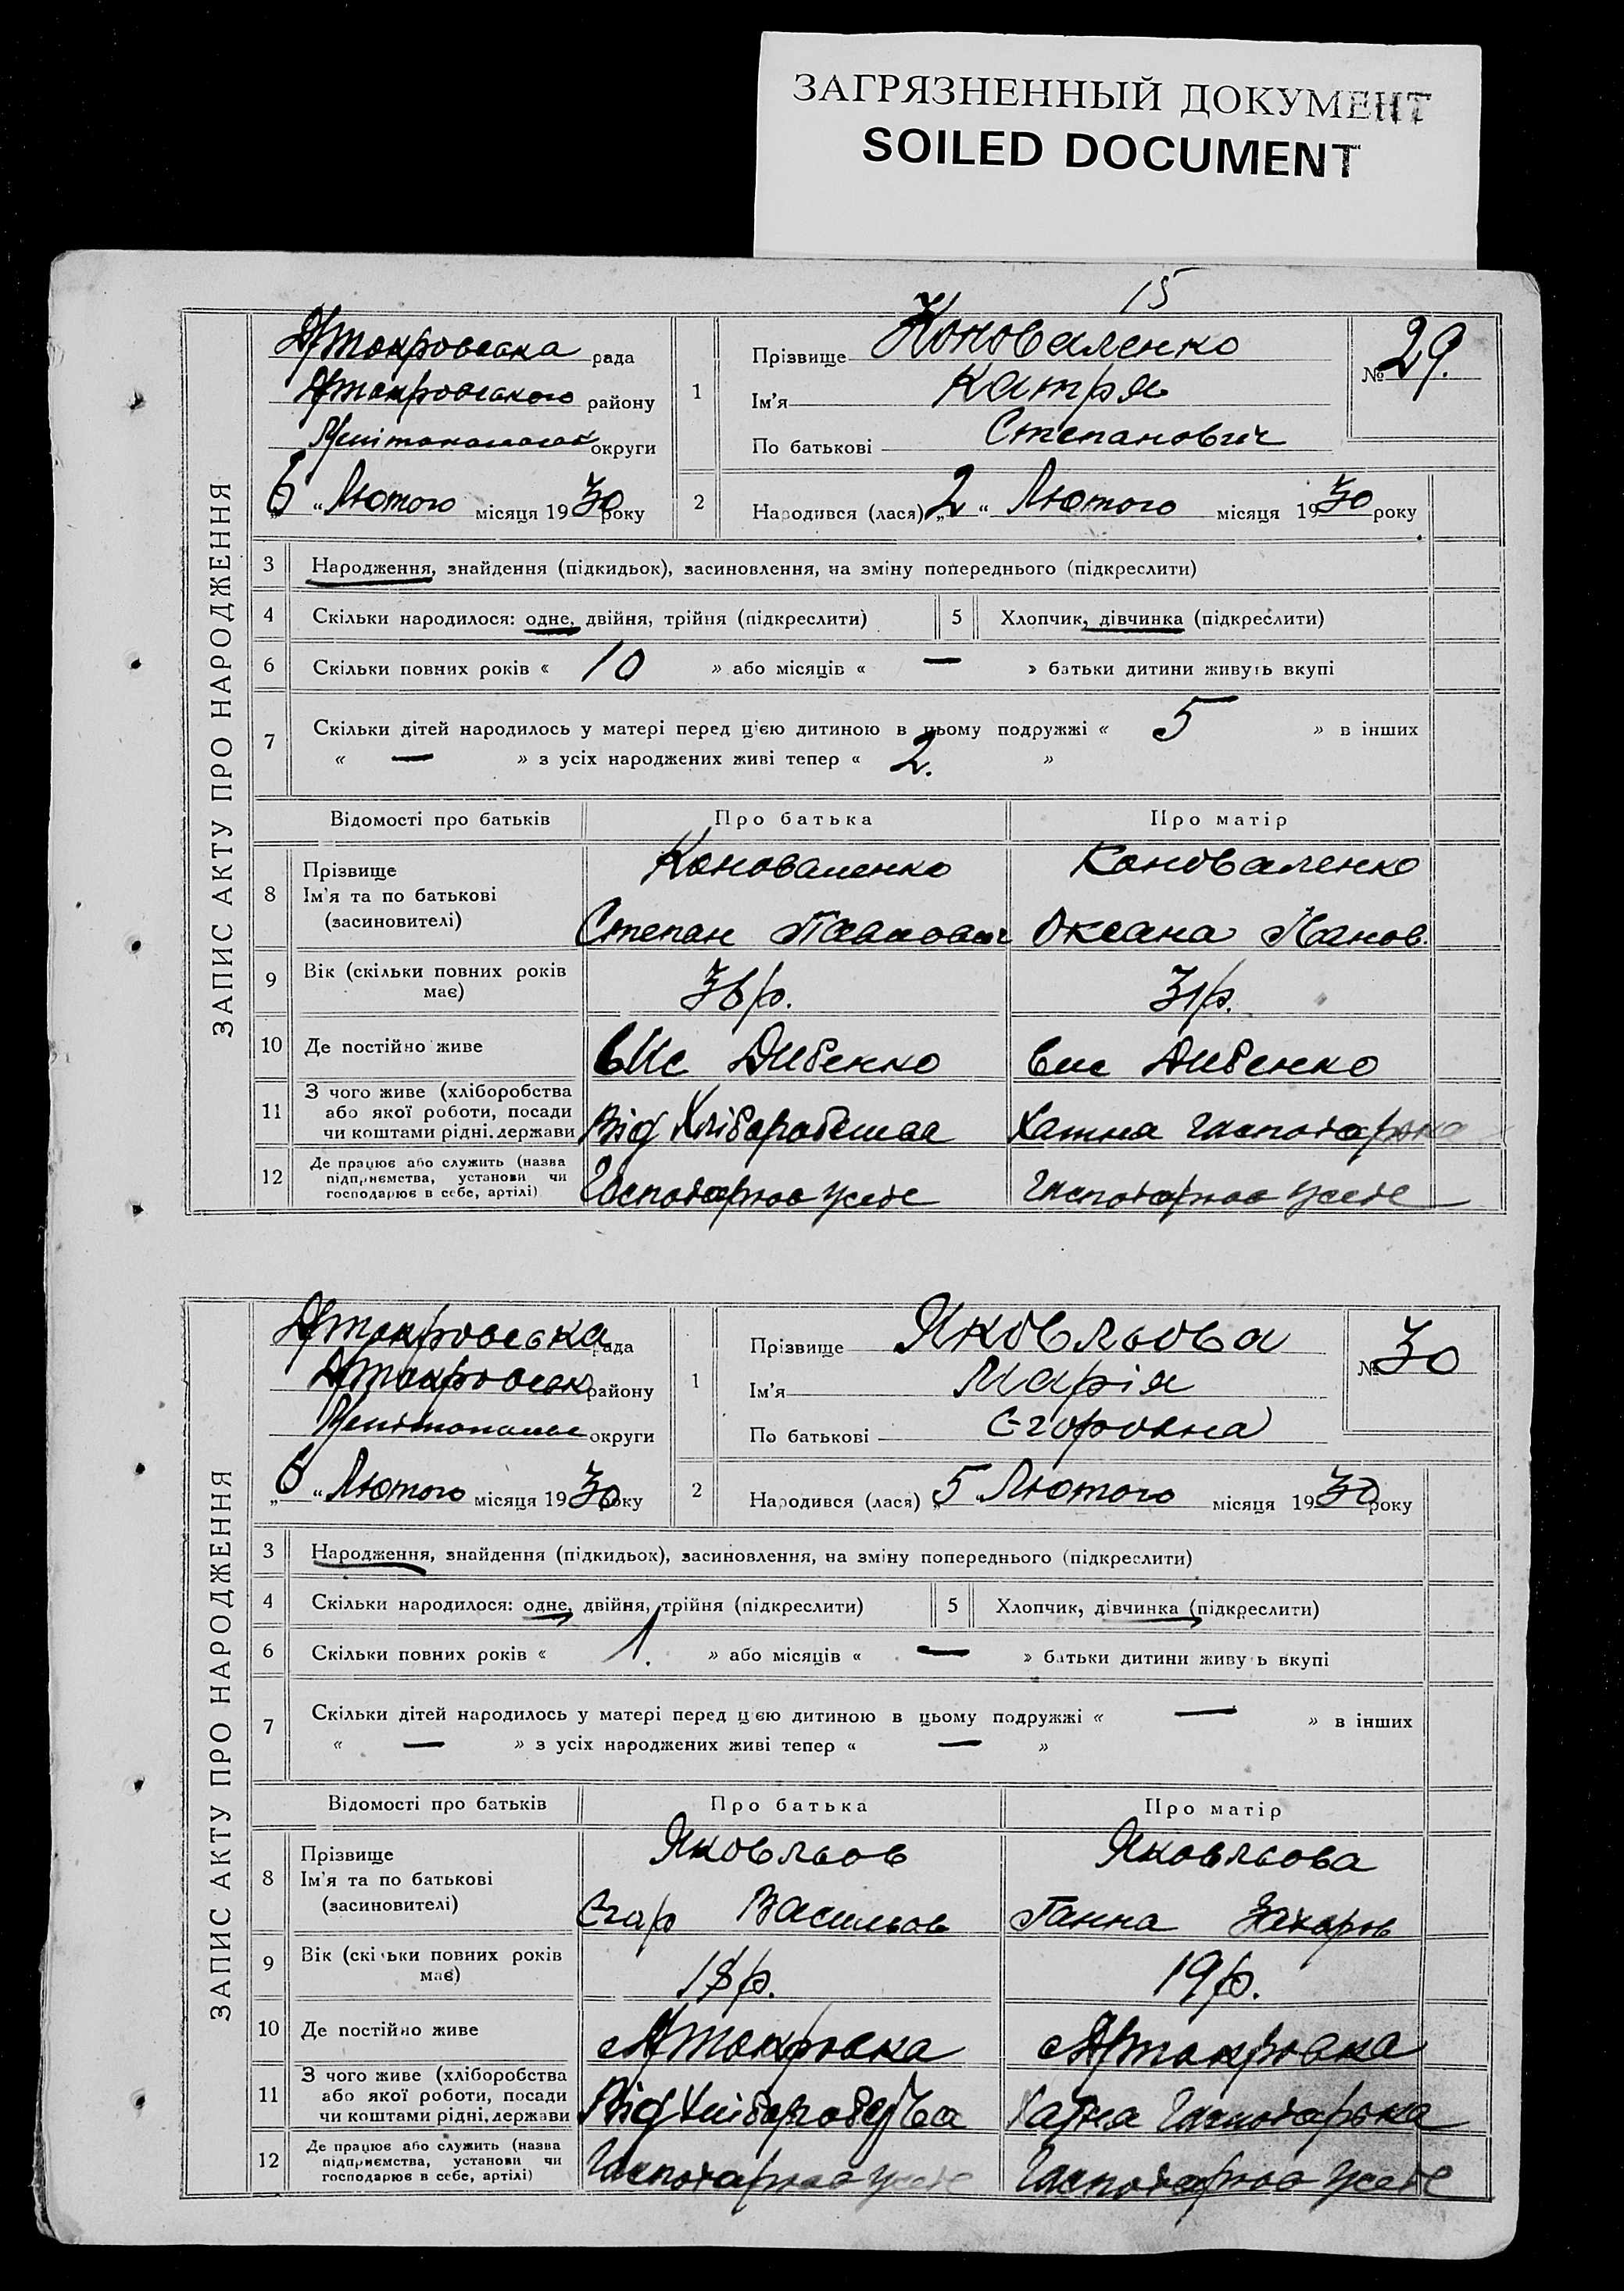 ЗАГРЯЗНЕННЫЙ ДОКУМЕНТ
SOILED DOCUMENT
15
ЗАПИС АКТУ ПРО НАРОДЖЕННЯ
рада
району
округи
6 " Лютого місяця 1930 року
1 Прізвище Коноваленко
Ім'я Катря
По батькові Степанович
№ 29.
2 Народився (лася) „2 " Лютого місяця 1930 року
3 Народження, знайдення (підкидьок), засиновлення, на зміну попереднього (підкреслити)
4 Скільки народилося: одне, двійня, трійня (підкреслити) 5 Хлопчик, дівчинка (підкреслити)
6 Скільки повних років « 10 » або місяців « — » батьки дитини живуть вкупі
7 Скільки дітей народилось у матері перед цією дитиною в цьому подружжі « 5 » в інших
« — » з усіх народжених живі тепер « 2. »
Відомості про батьків Про батька Про матір
8 Прізвище
Ім'я та по батькові
(засиновителі)
Коноваленко Коноваленко
Степан Павлович Оксана Иванов.
9 Вік (скільки повних років має) 36 р. 31 р.
10 Де постійно живе вис Дибенко вис Дибенко
11 З чого живе (хліборобства
або якої роботи, посади
чи коштами рідні, держави
Від Хліборобства Хатня Господарька
12 Де працює або служить (назва
підприємства, установи чи
господарює в себе, артілі)
Господарює усебе Господарює усебе
ЗАПИС АКТУ ПРО НАРОДЖЕННЯ
рада
району
округи
„6 " Лютого місяця 1930 року
1 Прізвище Яковльова
Ім'я Марія
По батькові Єгоровна
№ 30
2 Народився (лася) „5 Лютого місяця 1930 року
3 Народження, знайдення (підкидьок), засиновлення, на зміну попереднього (підкреслити)
4 Скільки народилося: одне, двійня, трійня (підкреслити) 5 Хлопчик, дівчинка (підкреслити)
6 Скільки повних років « 1. » або місяців « — » батьки дитини живуть вкупі
7 Скільки дітей народилось у матері перед цією дитиною в цьому подружжі « — » в інших
« — » з усіх народжених живі тепер « — »
Відомості про батьків Про батька Про матір
8 Прізвище
Ім'я та по батькові
(засиновителі)
Яковльов Яковльова
Єгор Васильов Ганна Захаров
9 Вік (скільки повних років має) 18 р. 19 р.
10 Де постійно живе
11 З чого живе (хліборобства
або якої роботи, посади
чи коштами рідні, держави
Від Хліборобства Хатня Господарька
12 Де працює або служить (назва
підприємства, установи чи
господарює в себе, артілі)
Господарює усебе Господарює усебе